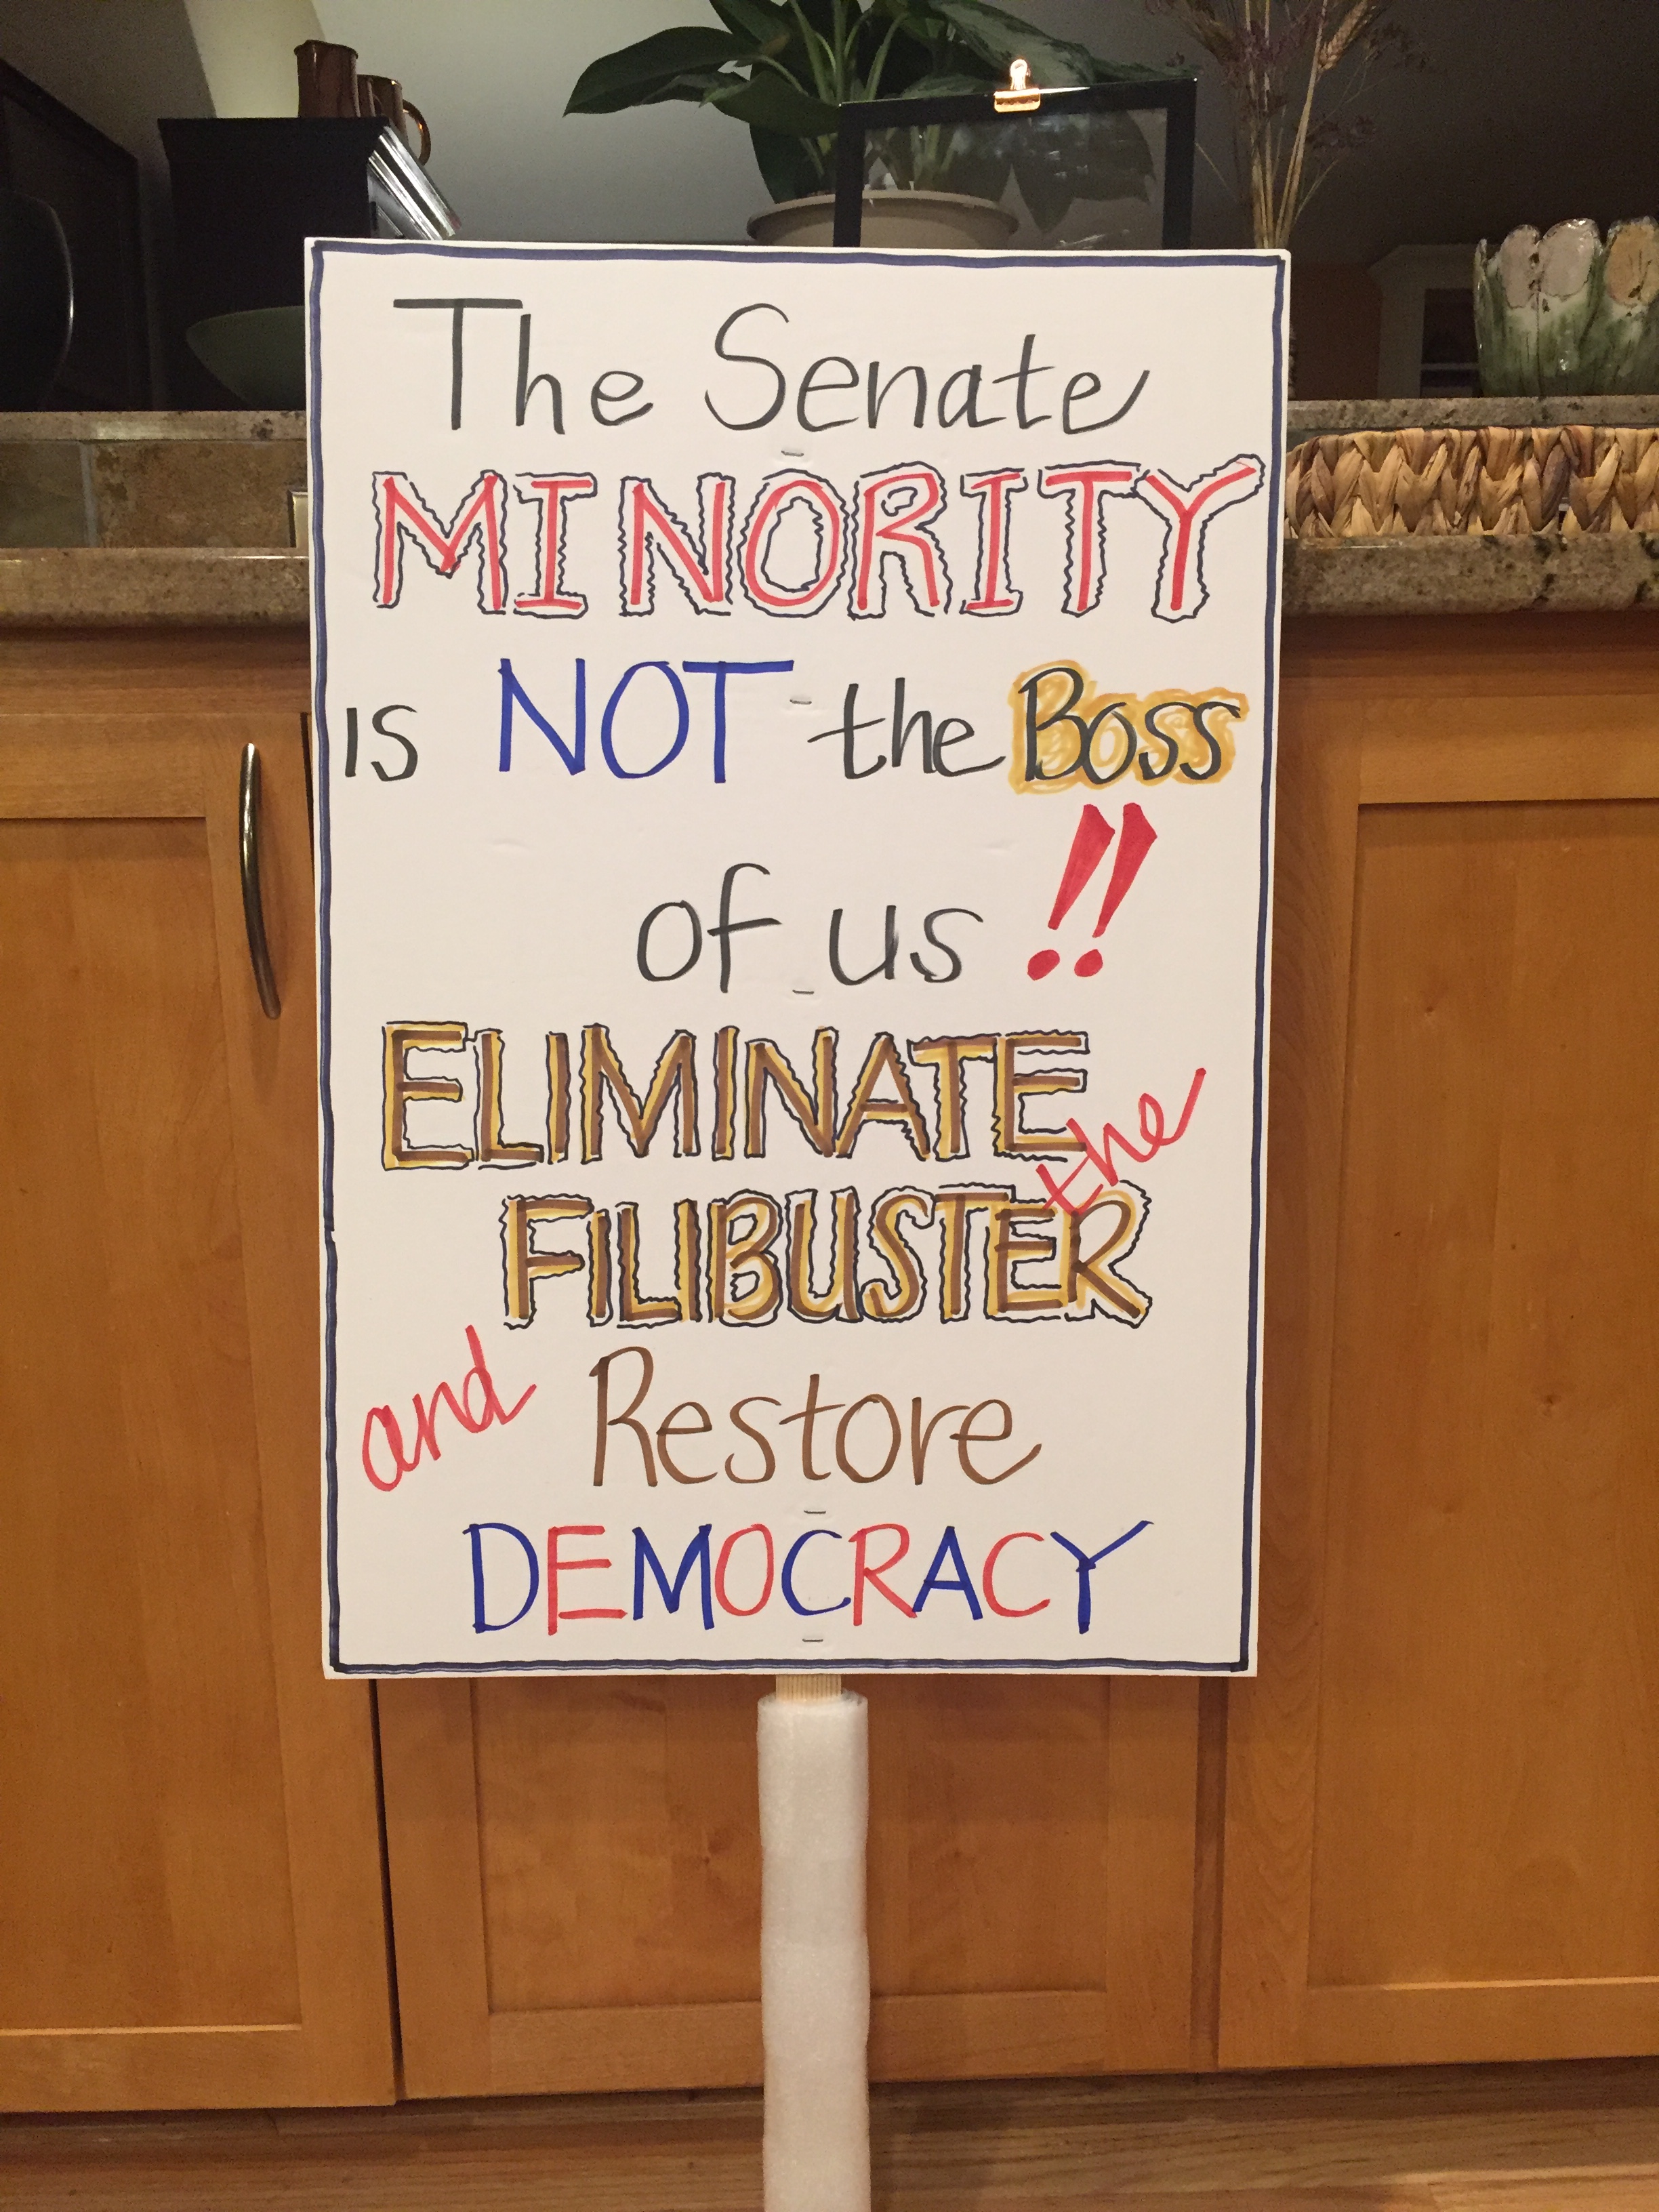 The Senate
MINORITY
is NOT the Boss
of us !!
ELIMINATE
the
FILIBUSTER
and Restore
DEMOCRACY